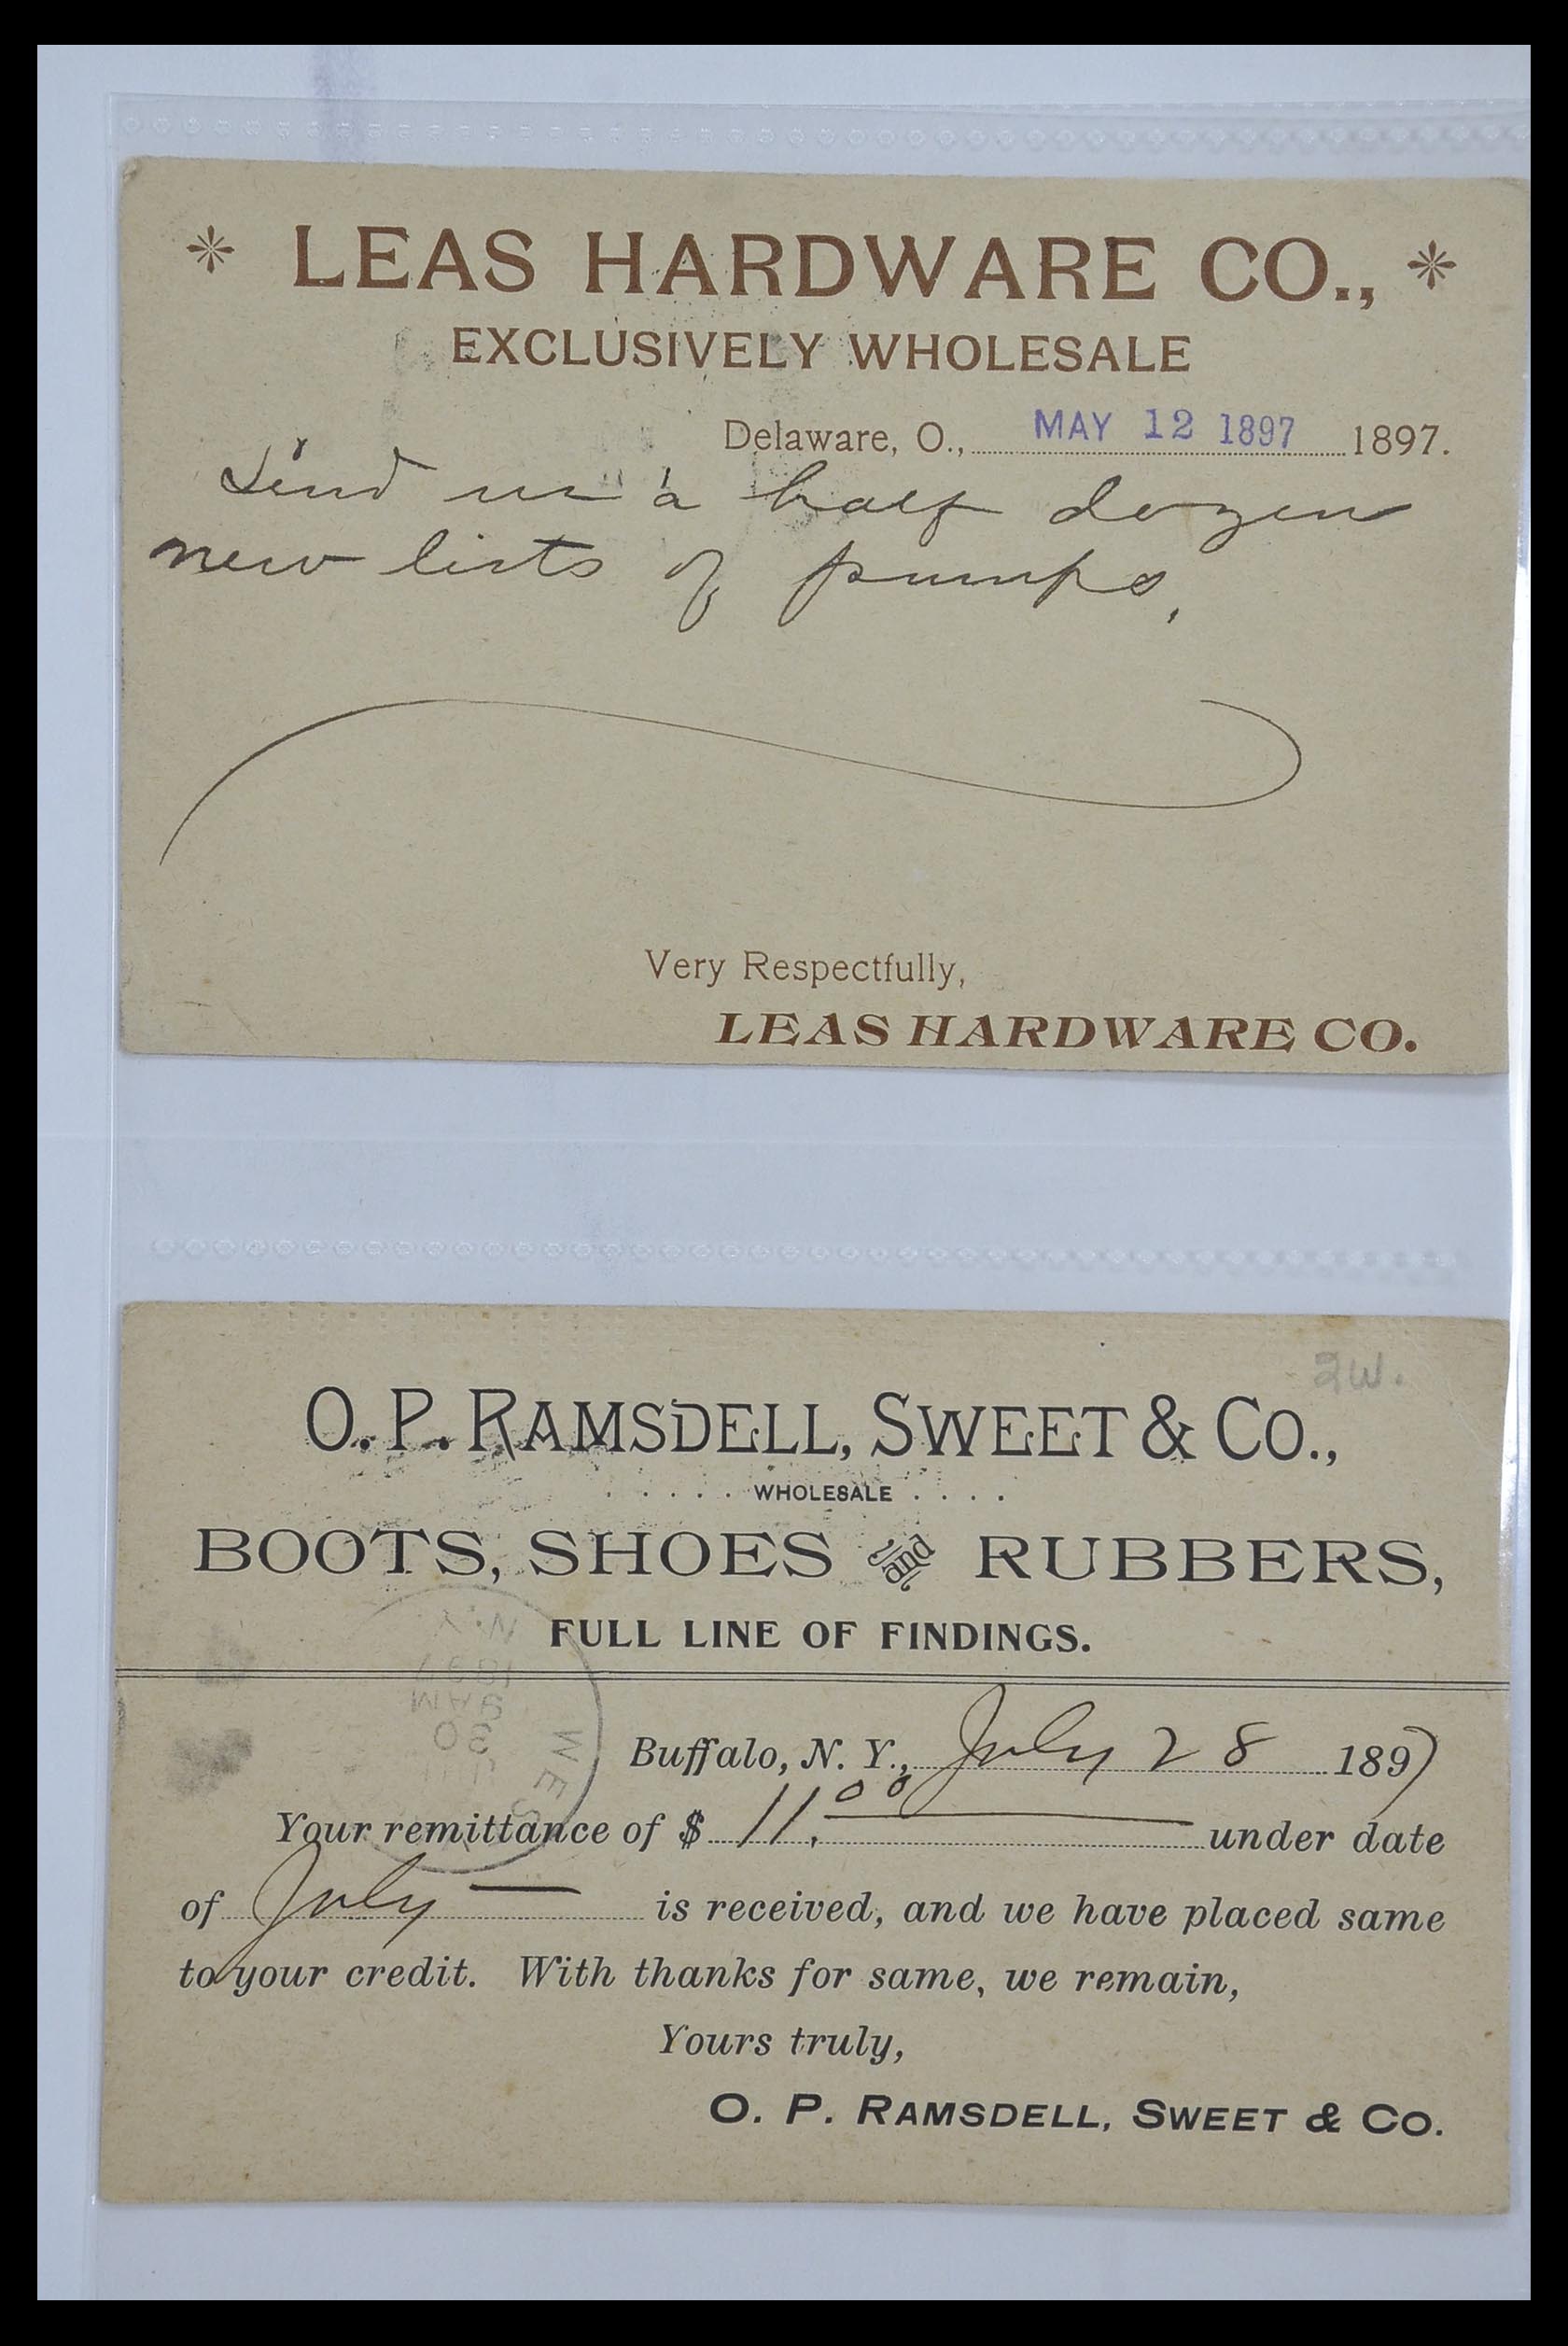 LEAS HARDWARE CO.,
EXCLUSIVELY WHOLESALE
Delaware, O., MAY 12 1897 1897.
Send us a half dozen
new lists of pumps.
Very Respectfully,
LEAS HARDWARE CO.
2W.
O. P. RAMSDELL, SWEET & CO.,
WHOLESALE
BOOTS, SHOES and RUBBERS,
FULL LINE OF FINDINGS.
N.Y.
1897
9 AM
30
WES
Buffalo, N. Y., July 28 1897
Your remittance of $ 11.00 under date
of July — is received, and we have placed same
to your credit. With thanks for same, we remain,
Yours truly,
O. P. RAMSDELL, SWEET & CO.